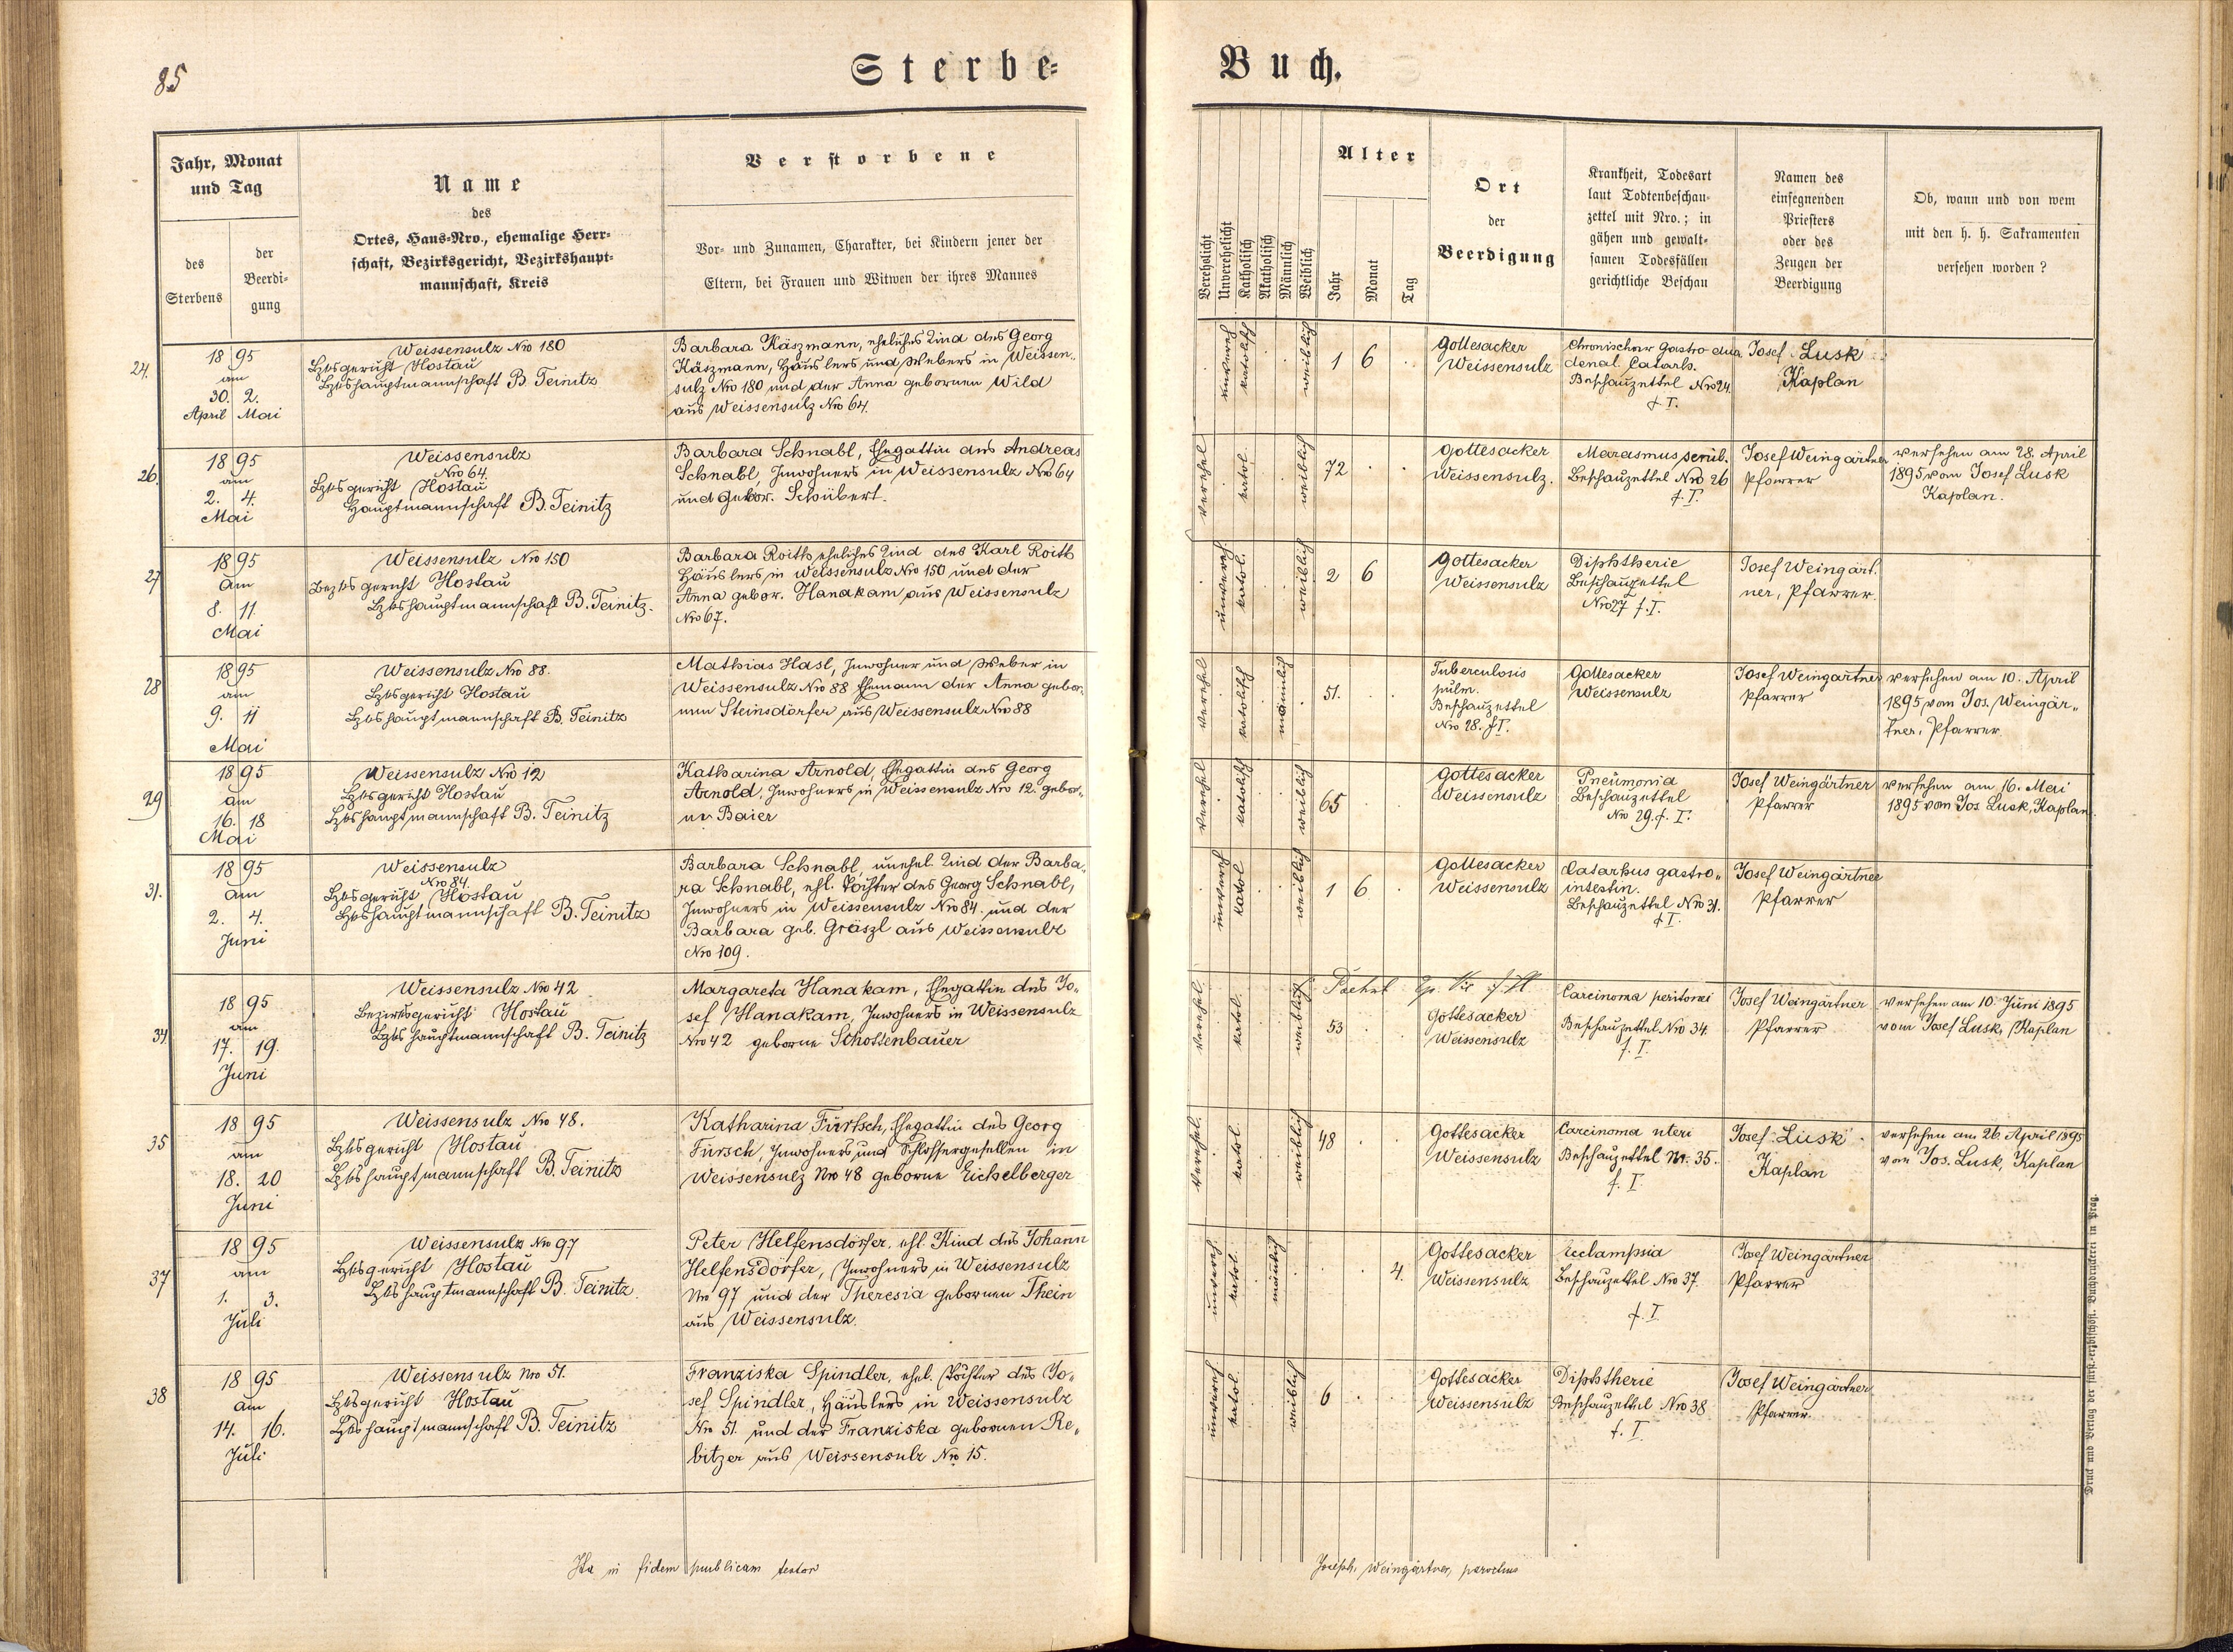 85
Sterbe=
Buch.
Jahr, Monat
und Tag
des
Sterbens
der
Beerdi-
gung
Name
des
Ortes, Haus-Nro., ehemalige Herr-
schaft, Bezirksgericht, Bezirkshaupt-
mannschaft, Kreis
Verstorbene
Vor- und Zunamen, Charakter, bei Kindern jener der
Eltern, bei Frauen und Witwen der ihres Mannes
Verehelicht
Unverehelicht
Katholisch
Akatholisch
Männlich
Weiblich
Alter
Jahr
Monat
Tag
Ort
der
Beerdigung
Krankheit, Todesart
laut Todtenbeschau-
zettel mit Nro.; in
gähen und gewalt-
samen Todesfällen
gerichtliche Beschau
Namen des
einsegnenden
Priesters
oder des
Zeugen der
Beerdigung
Ob, wann und von wem
mit den h. h. Sakramenten
versehen worden?
24.
18 95
am
30. 2.
April Mai
Weissensulz Nro 180
Bzksgericht Hostau
Bzkshauptmannschaft B. Teinitz
Barbara Käszmann, eheliches Kind des Georg
Käszmann, Häuslers und Webers in Weissen-
sulz Nro 180 und der Anna gebornen Wild
aus Weissensulz Nro 64.
unvereh
katolisch
weiblich
1 6
Gottesacker
Weissensulz
Chronischer Gastro duo
denal Catarh.
Beschauzettel Nro 24.
f. I.
Josef Lusk
Kaplan
26.
18 95
am
2. 4.
Mai
Weissensulz
Nro 64.
Bzksgericht Hostau
Hauptmannschaft B. Teinitz
Barbara Schnabl, Ehegattin des Andreas
Schnabl, Inwohners in Weissensulz Nro 64
und gebor. Schubert.
verehel
katol.
weiblich
72
Gottesacker
Weissensulz.
Marasmus senil.
Beschauzettel Nro 26
f. I.
Josef Weingärtner
Pfarrer
versehen am 28. April
1895 vom Josef Lusk
Kaplan.
27
18 95
am
8. 11.
Mai
Weissensulz Nro 150
Bezksgericht Hostau
Bzkshauptmannschaft B. Teinitz.
Barbara Roith eheliches Kind des Karl Roith
Häuslers in Weissensulz Nro 150 und der
Anna gebor. Hanakam aus Weissensulz
Nro 67.
unvereh.
katol.
weiblich
2 6
Gottesacker
Weissensulz
Diphtherie
Beschauzettel
Nro 27 f. I.
Josef Weingärt.
ner, Pfarrer
28
18 95
am
9. 11
Mai
Weissensulz Nro 88.
Bzksgericht Hostau
Bzkshauptmannschaft B. Teinitz
Mathias Hasl, Inwohner und Weber in
Weissensulz Nro 88 Ehemann der Anna gebor-
nen Steinsdorfer aus Weissensulz Nro 88
verehel
katolisch
männlich
51.
Tuberculosis
pulm.
Beschauzettel
Nro 28. f I.
Gottesacker
Weissensulz
Josef Weingärtner
Pfarrer
versehen am 10. April
1895 vom Jos. Weingär-
tner, Pfarrer
29
18 95
am
16. 18
Mai
Weissensulz Nro 12
Bzksgericht Hostau
Bzkshauptmannschaft B. Teinitz
Katharina Arnold, Ehegattin des Georg
Arnold, Inwohners in Weissensulz Nro 12. gebor-
ne Baier
verehel
katolisch
weiblich
65
Gottesacker
Weissensulz
Pneumonia
Beschauzettel
Nro 29. f. I.
Josef Weingärtner
Pfarrer
versehen am 16. Mai
1895 vom Jos. Lusk, Kaplan.
31.
18 95
am
2. 4.
Juni
Weissensulz
Nro 84.
Bzksgericht Hostau
Bzkshauptmannschaft B. Teinitz
Barbara Schnabl, unehel. Kind der Barba-
ra Schnabl, ehl. Tochter des Georg Schnabl,
Inwohners in Weissensulz Nro 84. und der
Barbara geb. Gräszl aus Weissensulz
Nro 109.
unvereh
katol
weiblich
1 6
Gottesacker
Weissensulz
Catarhus gastro-
intestin.
Beschauzettel Nro 31.
f I.
Josef Weingärtner
Pfarrer
34
18 95
am
17. 19.
Juni
Weissensulz Nro 42
Bezirksgericht Hostau
Bzkshauptmannschaft B. Teinitz
Margareta Hanakam, Ehegattin des Jo-
sef Hanakam, Inwohners in Weissensulz
Nro 42 geborne Schottenbauer
verehel.
katol.
weiblich
53
Gottesacker
Weissensulz
Carcinoma peritonei
Beschauzettel Nro 34.
f. I.
Josef Weingärtner
Pfarrer
versehen am 10. Juni 1895
vom Josef Lusk, Kaplan
35
18 95
am
18. 20
Juni
Weissensulz Nro 48.
Bzksgericht Hostau
Bzkshauptmannschaft B. Teinitz
Katharina Fürtsch, Ehegattin des Georg
Fürsch, Inwohners und Schlossergesellen in
Weissensulz Nro 48 geborne Eichelberger
verehel.
katol.
weiblich
48
Gottesacker
Weissensulz
Carcinoma uteri
Beschauzettel Nr. 35.
f. I.
Josef Lusk
Kaplan
versehen am 26. April 1895
vom Jos. Lusk, Kaplan
37
18 95
am
1. 3.
Juli
Weissensulz Nro 97
Bzksgericht Hostau
Bzkshauptmannschaft B. Teinitz.
Peter Helfensdörfer, ehl. Kind des Johann
Helfensdörfer, Inwohners in Weissensulz
Nro 97 und der Theresia gebornen Thein
aus Weissensulz.
unvereh.
katol.
männlich
4.
Gottesacker
Weissensulz
Ecclampsia
Beschauzettel Nro 37.
f. I
Josef Weingärtner
Pfarrer
38
18 95
am
14. 16.
Juli
Weissensulz Nro 51.
Bzksgericht Hostau
Bzkshauptmannschaft B. Teinitz
Franziska Spindler, ehel. Tochter des Jo-
sef Spindler, Häuslers in Weissensulz
Nro 51. und der Franziska gebornen Re-
bitzer aus Weissensulz Nro 15.
unvereh
katol.
weiblich
6
Gottesacker
Weissensulz
Diphtherie
Beschauzettel Nro 38
f. I.
Josef Weingärtner
Pfarrer.
Ita in fidem publicam testor
Joseph. Weingärtner, parochus
Druck und Verlag der fürst.-erzbischöfl. Buchdruckerei in Prag.